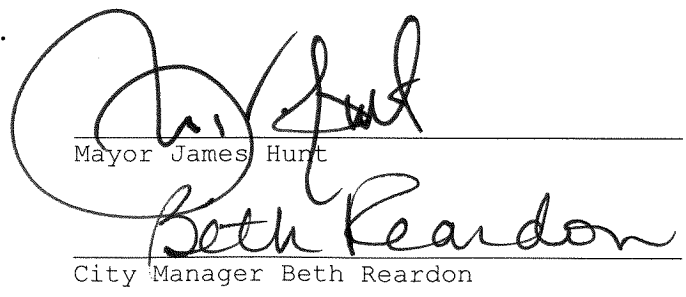 Mayor James Hunt
Beth Reardon
City Manager Beth Reardon